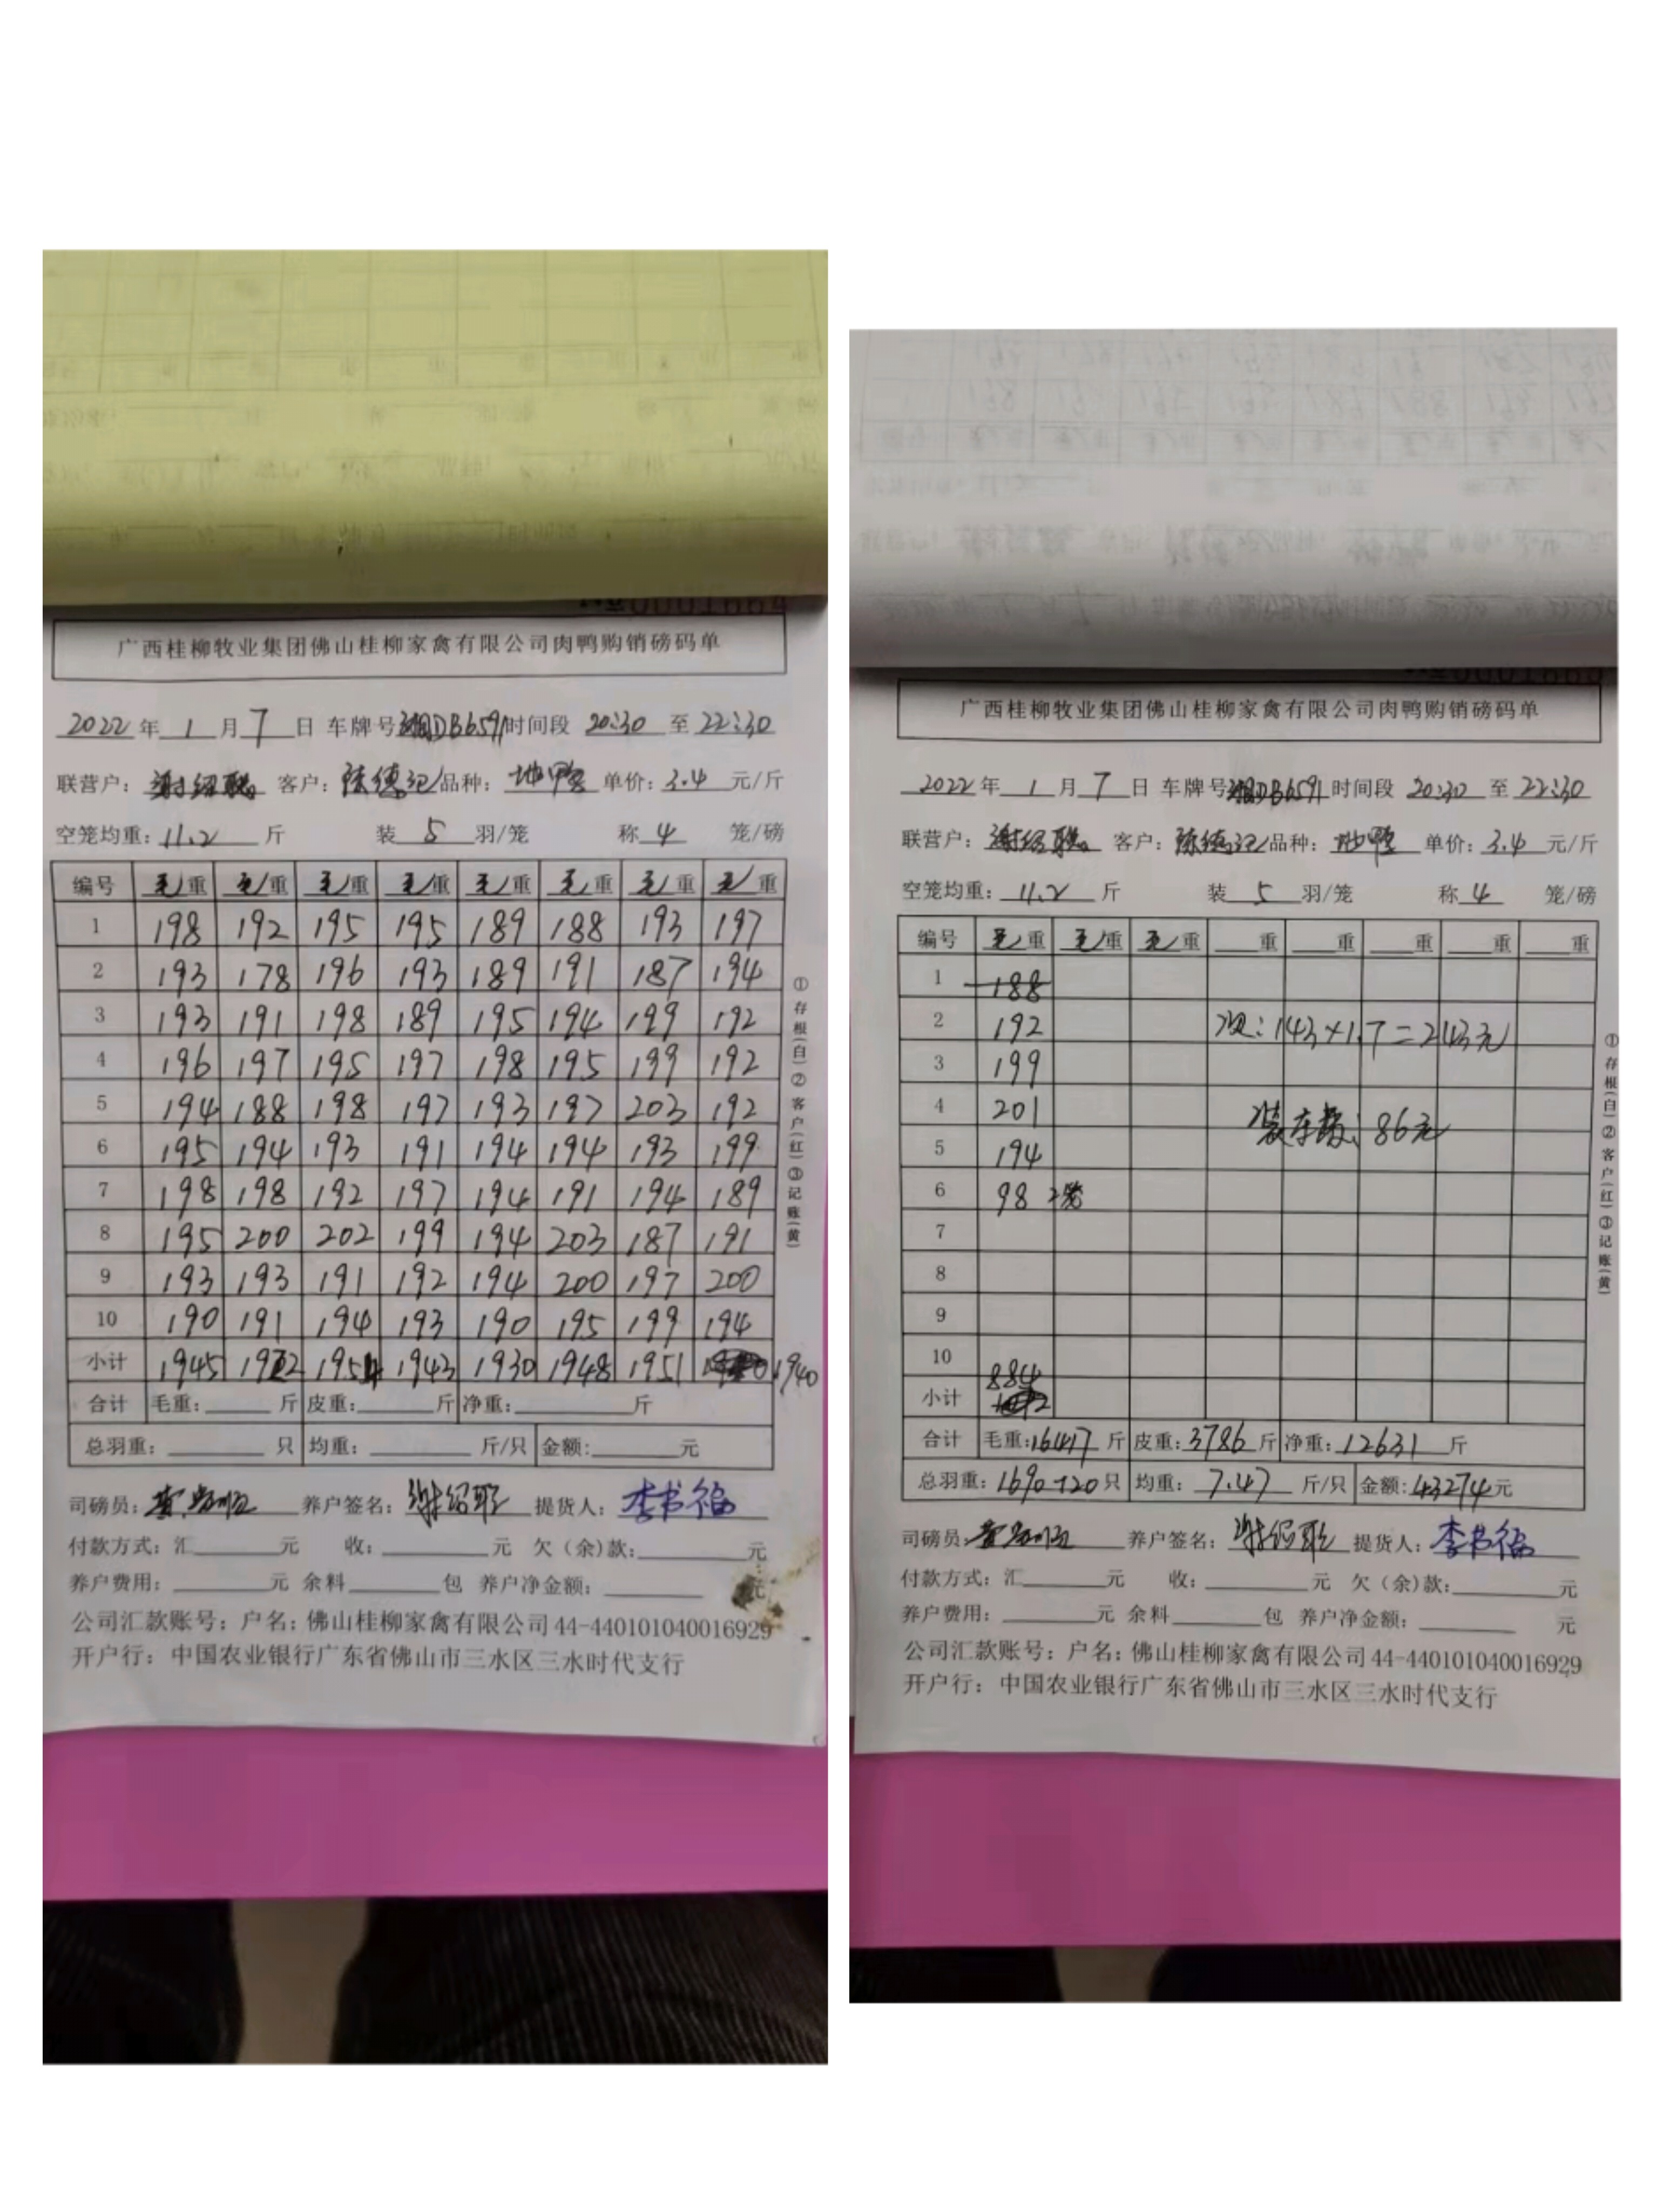 №0001664
广西桂柳牧业集团佛山桂柳家禽有限公司肉鸭购销磅码单
2022 年 1 月 7 日 车牌号 湘DB6591 时间段 20:30 至 22:30
联营户: 谢绍聪 客户: 陈德记 品种: 地鸭 单价: 3.4 元/斤
空笼均重: 11.2 斤 装 5 羽/笼 称 4 笼/磅
编号 毛重 毛重 毛重 毛重 毛重 毛重 毛重 毛重
1 198 192 195 195 189 188 193 197
2 193 178 196 193 189 191 187 194
3 193 191 198 189 195 194 199 192
4 196 197 195 197 198 195 199 192
5 194 188 198 197 193 197 203 192
6 195 194 193 191 194 194 193 199
7 198 198 192 197 194 191 194 189
8 195 200 202 199 194 203 187 191
9 193 193 191 192 194 200 197 200
10 190 191 194 193 190 195 199 194
小计 1945 1922 1954 1943 1930 1948 1951 1940
合计 毛重: 斤 皮重: 斤 净重: 斤
总羽重: 只 均重: 斤/只 金额: 元
司磅员: 养户签名: 谢绍聪 提货人: 李书福
付款方式: 汇 元 收: 元 欠(余)款: 元
养户费用: 元 余料 包 养户净金额: 元
公司汇款账号: 户名: 佛山桂柳家禽有限公司 44-440101040016929
开户行: 中国农业银行广东省佛山市三水区三水时代支行
①存根(白)②客户(红)③记账(黄)
广西桂柳牧业集团佛山桂柳家禽有限公司肉鸭购销磅码单
2022 年 1 月 7 日 车牌号 湘DB6591 时间段 20:30 至 22:30
联营户: 谢绍聪 客户: 陈德记 品种: 地鸭 单价: 3.4 元/斤
空笼均重: 11.2 斤 装 5 羽/笼 称 4 笼/磅
编号 毛重 毛重 毛重 重 重 重 重 重
1 188
2 192 143×1.7=243元
3 199
4 201 装车费: 86元
5 194
6 98 2笼
7
8
9
10
小计 884
合计 毛重: 16417 斤 皮重: 3786 斤 净重: 12631 斤
总羽重: 1690-120 只 均重: 7.47 斤/只 金额: 43274 元
司磅员: 养户签名: 谢绍聪 提货人: 李书福
付款方式: 汇 元 收: 元 欠(余)款: 元
养户费用: 元 余料 包 养户净金额: 元
公司汇款账号: 户名: 佛山桂柳家禽有限公司 44-440101040016929
开户行: 中国农业银行广东省佛山市三水区三水时代支行
①存根(白)②客户(红)③记账(黄)